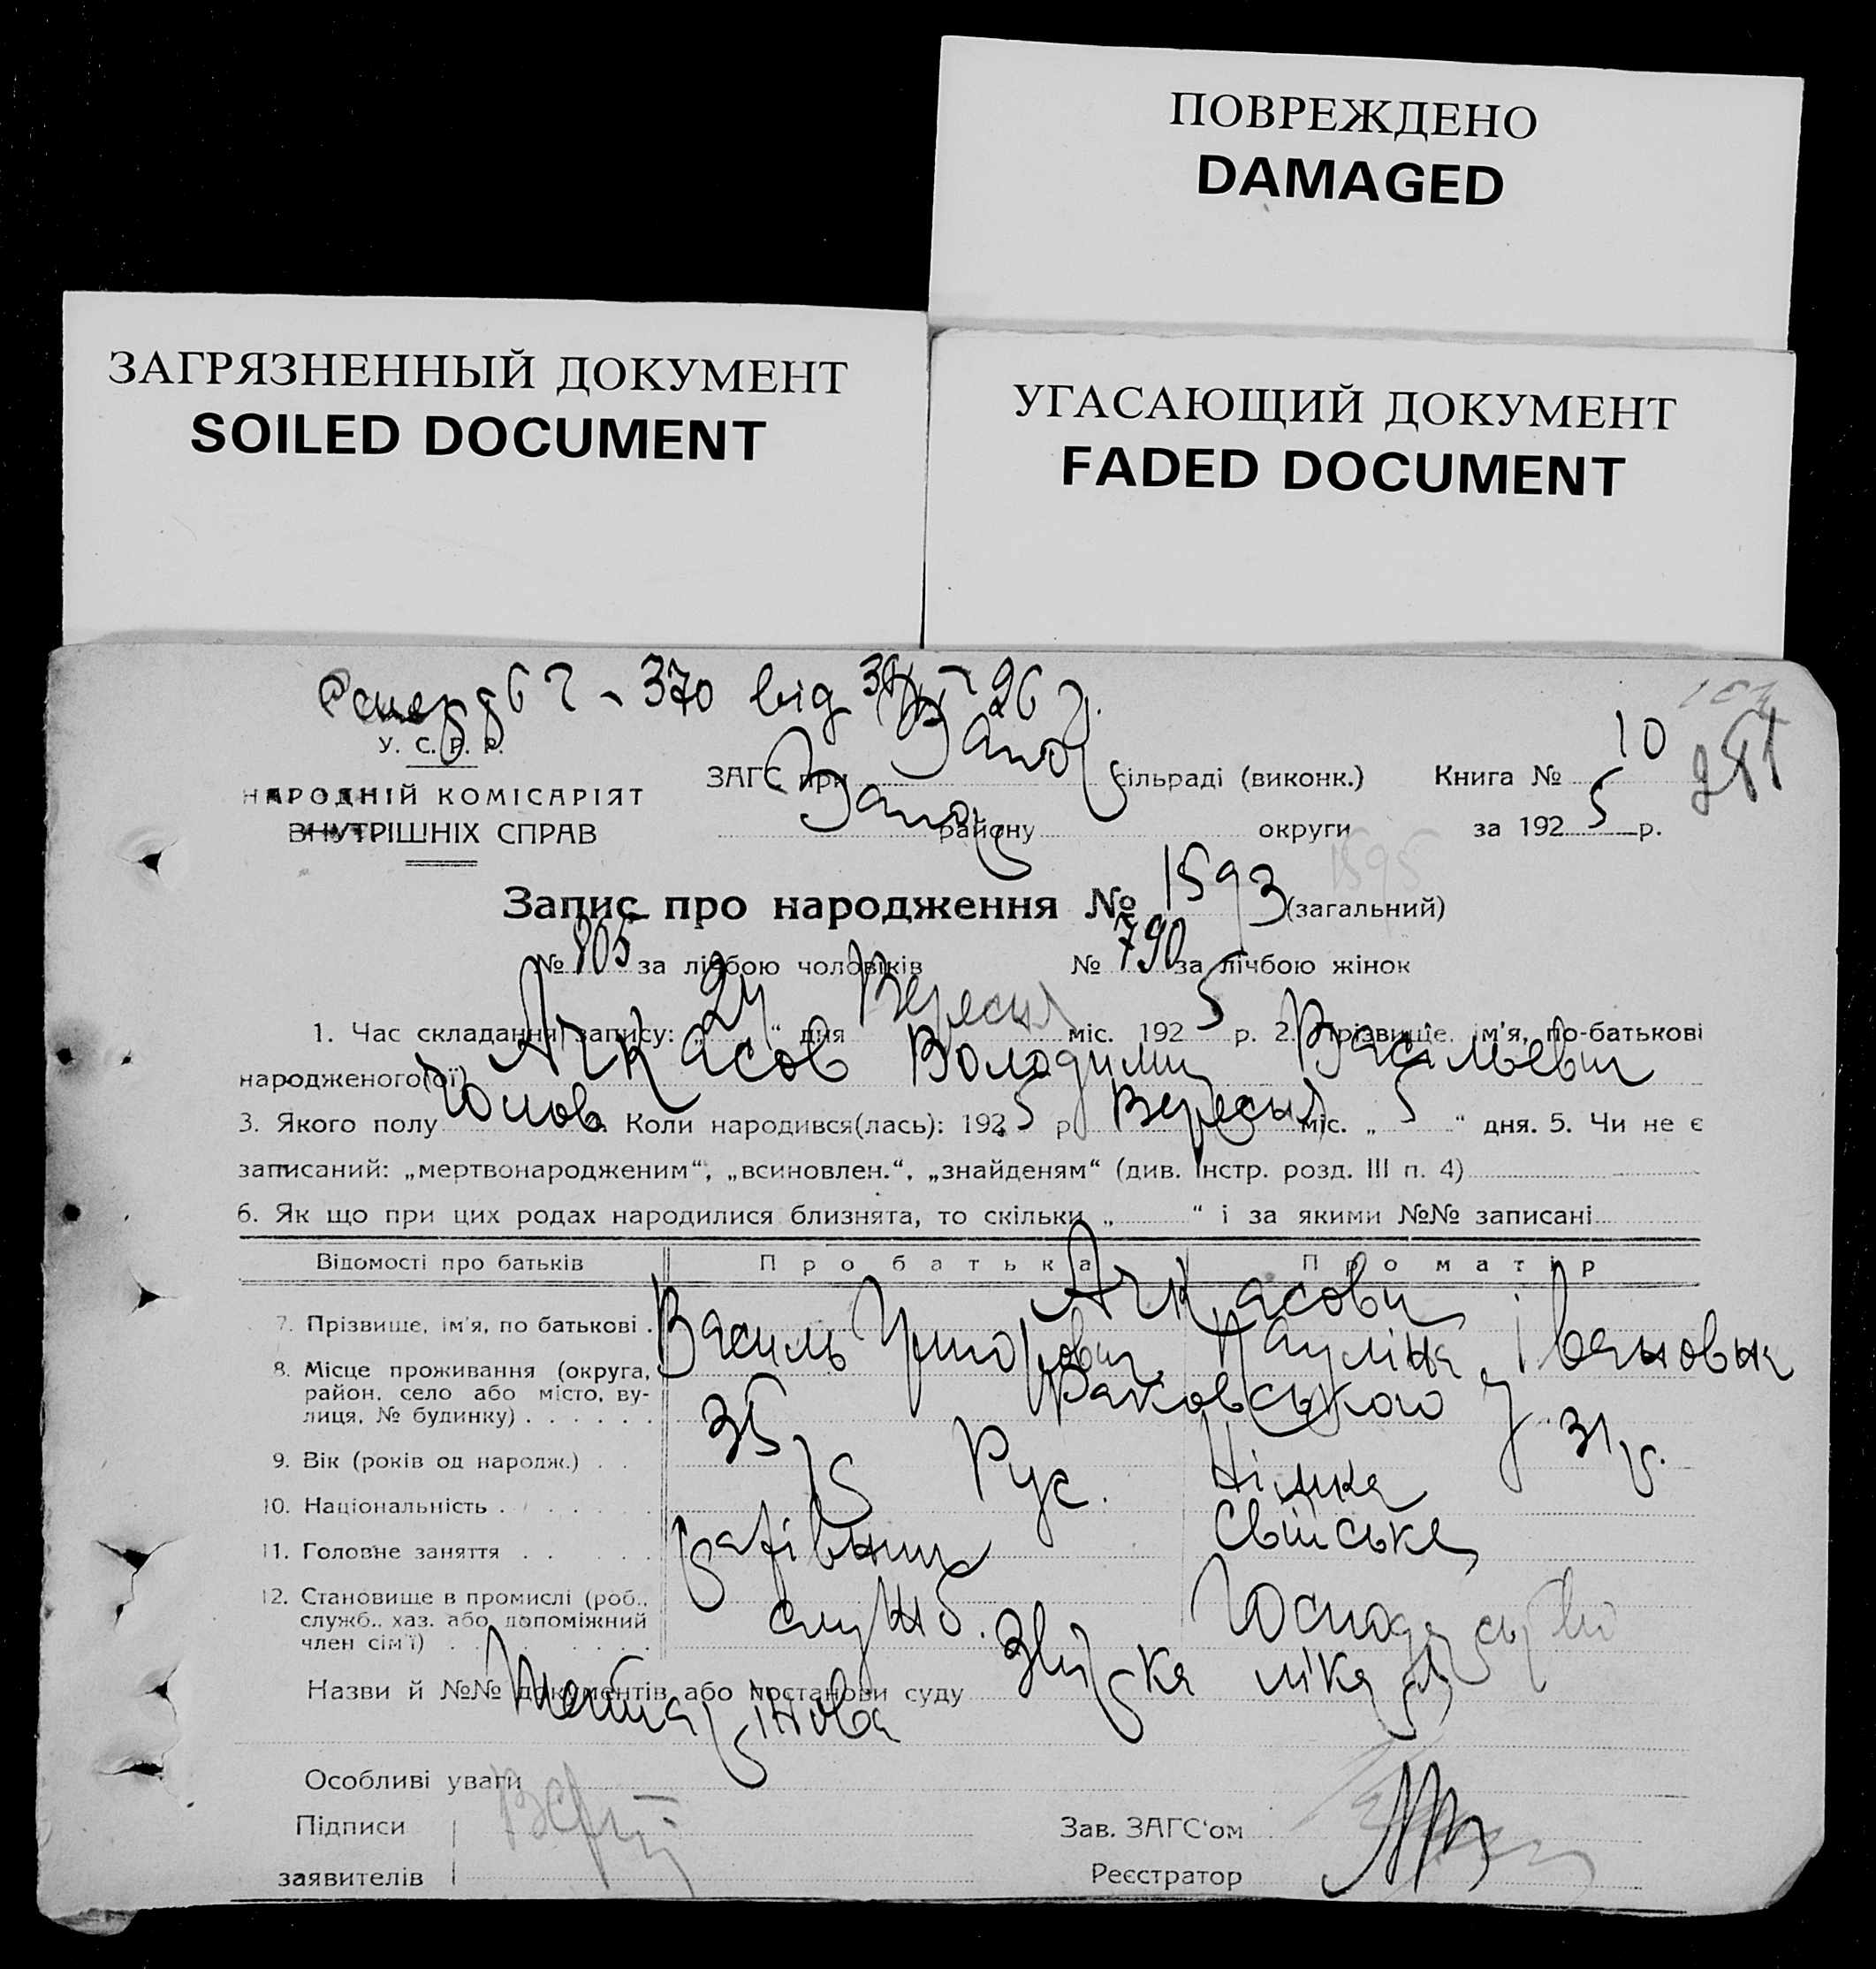 ПОВРЕЖДЕНО
DAMAGED
ЗАГРЯЗНЕННЫЙ ДОКУМЕНТ
SOILED DOCUMENT
УГАСАЮЩИЙ ДОКУМЕНТ
FADED DOCUMENT
370 від 26 р.
281
У. С. Р. Р.
НАРОДНІЙ КОМІСАРІЯТ
ВНУТРІШНІХ СПРАВ
ЗАГС при Запор сільраді (виконк.) Книга № 10
Запор району округи за 1925 р.
1595
Запис про народження № 1593 (загальний)
№ 805 за лічбою чоловіків № 790 за лічбою жінок
1. Час складання запису: „24“ дня Вересня міс. 1925 р. 2. Прізвище, ім'я, по-батькові
народженого(ої) Ачкасов Володимир Васильевич
3. Якого полу Чолов. Коли народився(лась): 1925 р. Вересня міс. „5“ дня. 5. Чи не є
записаний: „мертвонародженим“, „всиновлен.“, „знайденям“ (див. Інстр. розд. III п. 4)
6. Як що при цих родах народилися близнята, то скільки „ “ і за якими №№ записані
Відомості про батьків Про батька Про матір
Ачкасови
7. Прізвище, ім'я, по батькові . Василь Григорович Пауліна Івановна
8. Місце проживання (округа,
район, село або місто, ву-
лиця, № будинку) . . . . . . Раковського 7
9. Вік (років од народж.) . . 35 р. 31 р.
10. Національність . . . . . . Рус. Німка
11. Головне заняття . . . . . рахівник Свійське
12. Становище в промислі (роб.,
служб., хаз. або допоміжний
член сім'ї) . . . . . . . . служб. Господарство
Назви й №№ документів або постанови суду лікаря
Особливі уваги
Підписи
заявителів
Зав. ЗАГС'ом
Реєстратор